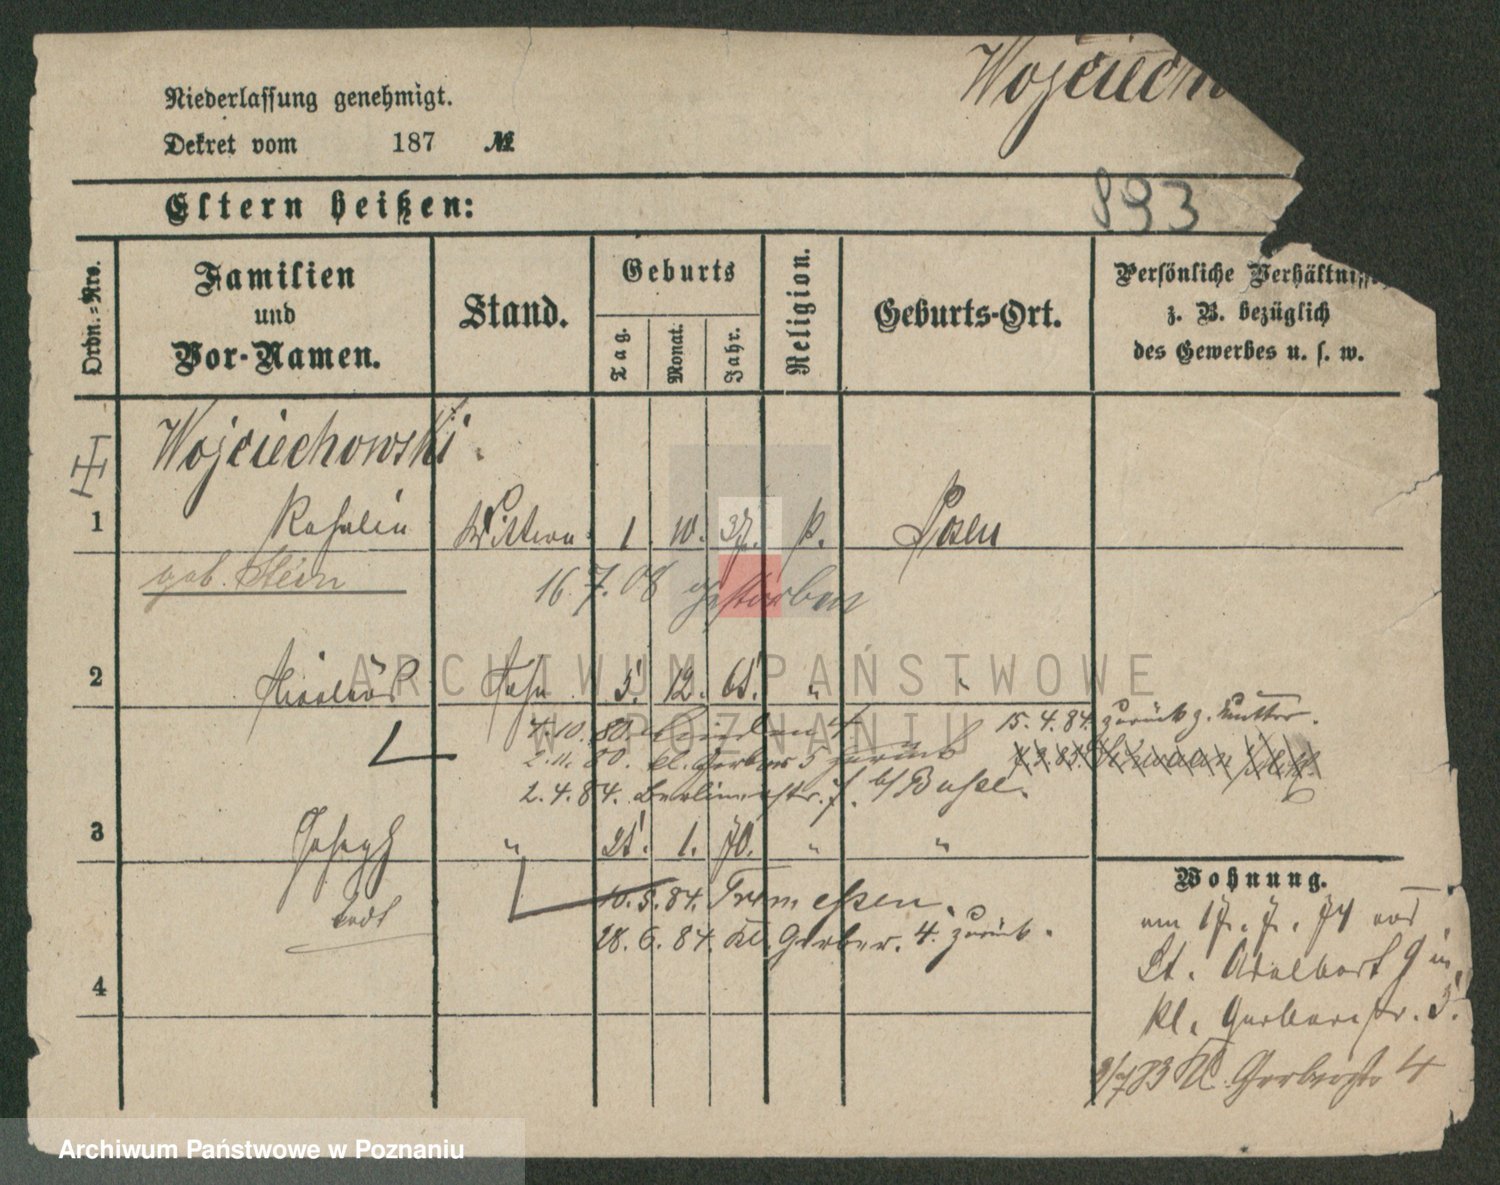 Wojciecho
Niederlassung genehmigt.
Dekret vom 187 №
893
Eltern heißen:
Ordn.=Nro.
Familien und Vor-Namen.
Stand.
Geburts
Tag.
Monat.
Jahr.
Religion.
Geburts-Ort.
Persönliche Verhältniss
z. B. bezüglich
des Gewerbes u. s. w.
Wojciechowski.
1 Rosalie Wittwe 1. 10. 37. k. Posen
geb. Stein
16.7.08 gestorben
2 Sohn 5. 12. 65. " "
4.10.80.
15.4.84. zurück z. Mutter.
2.11.80. kl. Gerber 5 zurück
2.4.84. Berlinerstr. 7. b/ Busse.
3 Joseph " 25. 1. 70. " "
todt
10.5.84. Tremessen.
28.6.84. Kl. Gerber. 4. zurück.
4
Wohnung.
am 17. 7. 74 von
St. Adalbert 9 in
kl. Gerberstr. 5.
9/7 83 Kl. Gerberstr 4
ARCHIWUM PAŃSTWOWE
W POZNANIU
Archiwum Państwowe w Poznaniu